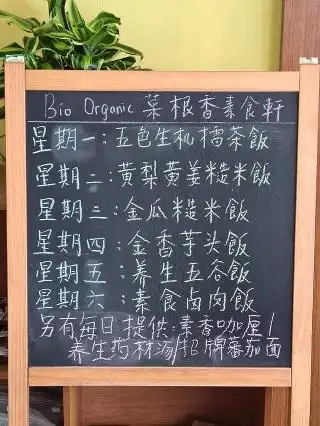 Bio Organic 菜根香素食軒
星期一：五色生机擂茶飯
星期二：黄梨黄姜糙米飯
星期三：金瓜糙米飯
星期四：金香芋头飯
星期五：养生五谷飯
星期六：素食卤肉飯
另有每日提供：素香咖喱/
养生药材汤/招牌蕃茄面